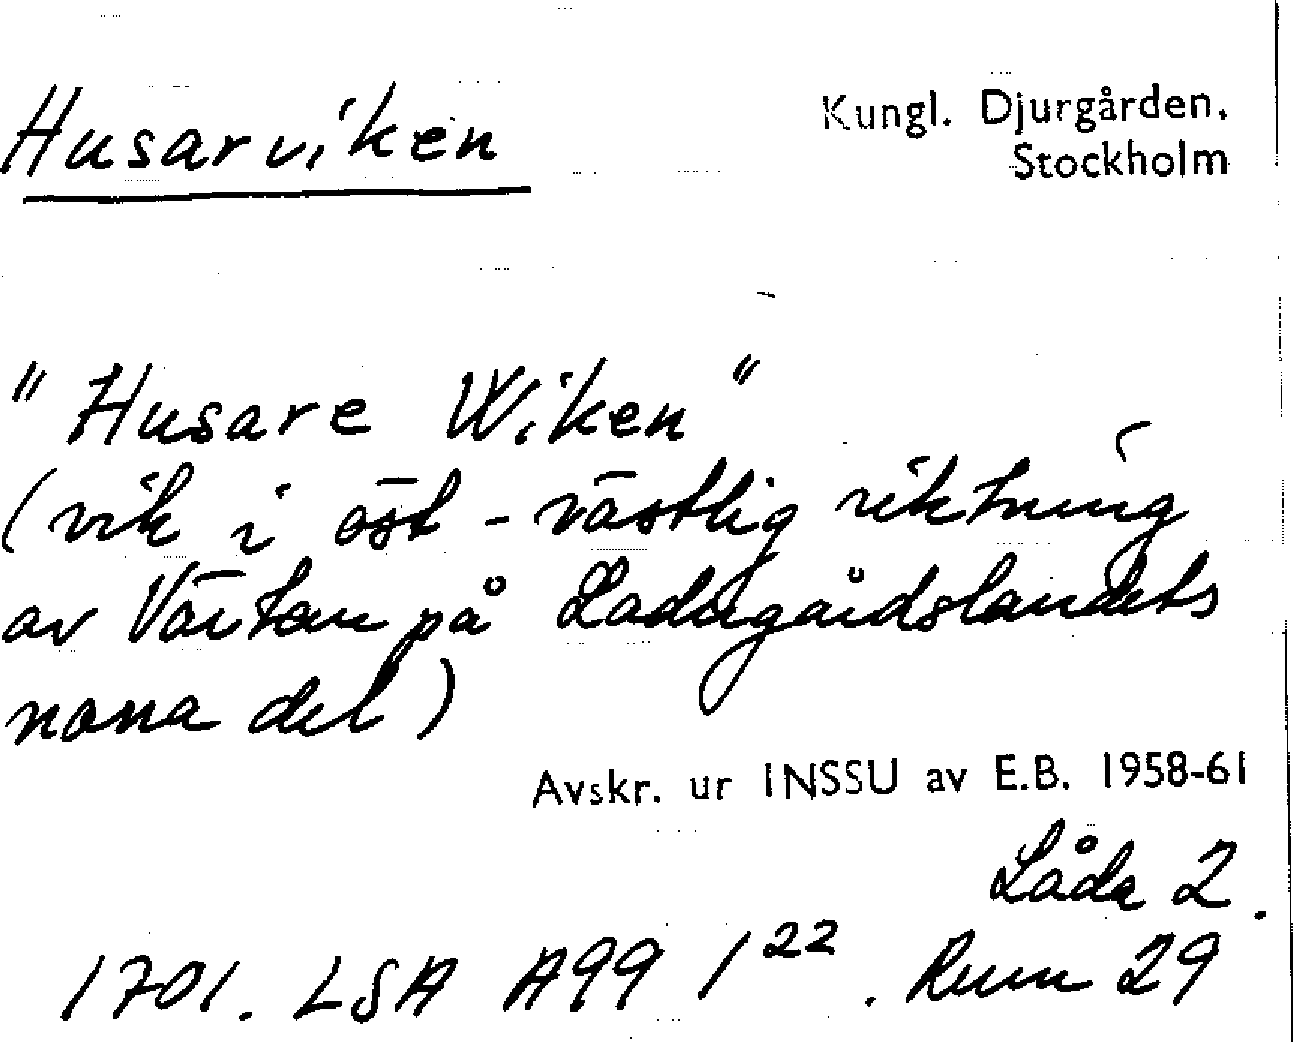 Husarviken
Kungl. Djurgården.
Stockholm
"Husare Wiken"
(vik i öst-västlig riktning
av Värtan på Ladugårdslandets
norra del)
Avskr. ur INSSU av E.B. 1958-61
Låda 2.
1701. LSA A99 1²². Rum 29